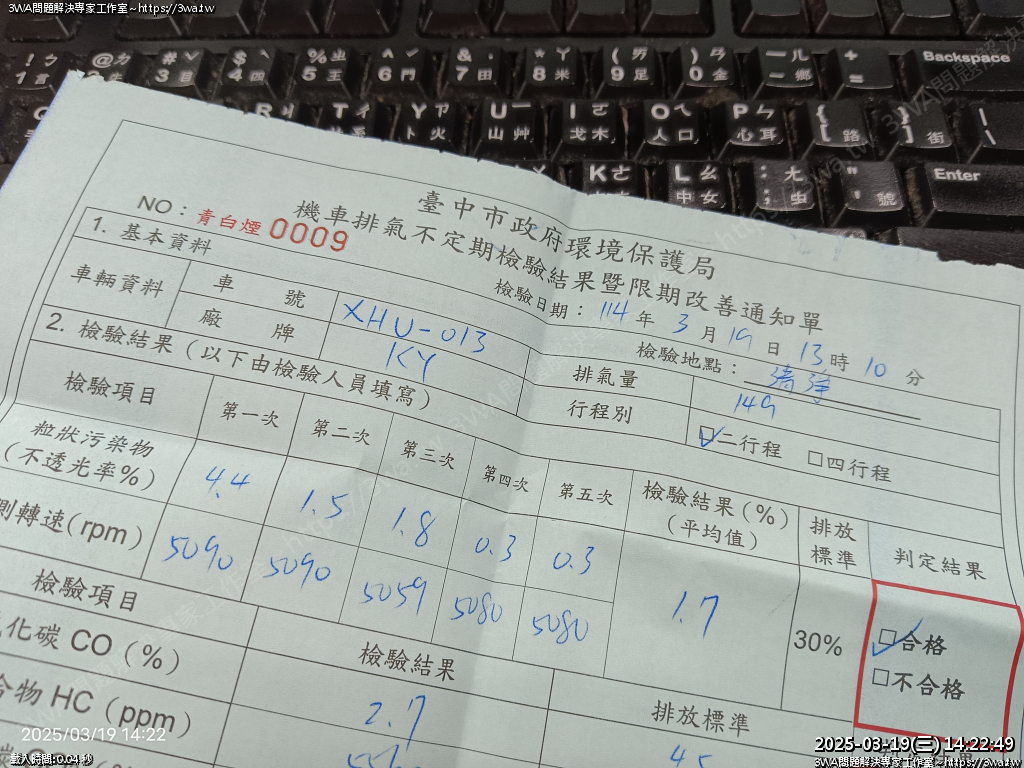 3WA問題解決專家工作室~https://3wa.tw
Backspace
Enter
臺中市政府環境保護局
機車排氣不定期檢驗結果暨限期改善通知單
NO：青白煙 0009
檢驗日期：114 年 3 月 19 日 13 時 10 分
1. 基本資料
檢驗地點：
車輛資料
車號
XHU-013
排氣量
149
廠牌
KY
行程別
☑二行程 □四行程
2. 檢驗結果（以下由檢驗人員填寫）
檢驗項目
第一次
第二次
第三次
第四次
第五次
檢驗結果(%)
(平均值)
排放
標準
判定結果
粒狀污染物
(不透光率%)
4.4
1.5
1.8
0.3
0.3
1.7
30%
☑合格
□不合格
測轉速(rpm)
5090
5090
5059
5080
5080
檢驗項目
檢驗結果
排放標準
化碳 CO（%）
2.7
4.5
合物 HC（ppm）
2025/03/19 14:22
載入時間:0.04 秒
2025-03-19(三) 14:22:49
3WA問題解決專家工作室~https://3wa.tw